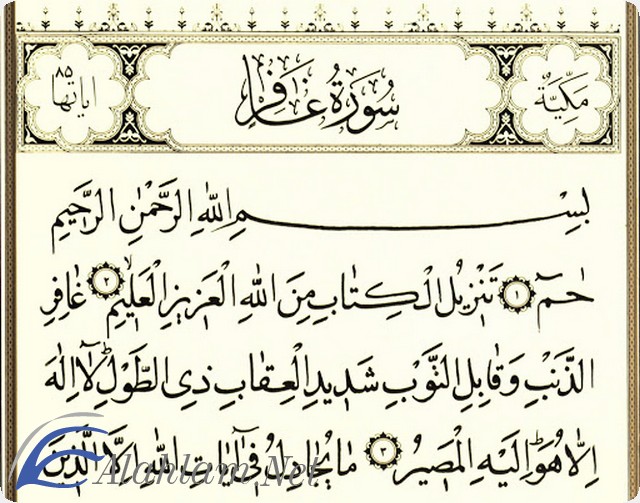 مَكِّيَّةٌ
سُورَةُ غَافِرٍ
اٰيَاتُهَا ٨٥
بِسْمِ اللّٰهِ الرَّحْمٰنِ الرَّحِيمِ
حٰمٓ ١ تَنْزِيلُ الْكِتَابِ مِنَ اللّٰهِ الْعَزِيزِ الْعَلِيمِ ٢ غَافِرِ
الذَّنْبِ وَقَابِلِ التَّوْبِ شَدِيدِ الْعِقَابِ ذِى الطَّوْلِ لَآ اِلٰهَ
اِلَّا هُوَ اِلَيْهِ الْمَصِيرُ ٣ مَا يُجَادِلُ فِىٓ اٰيَاتِ اللّٰهِ اِلَّا الَّذِينَ
Alahlam Net